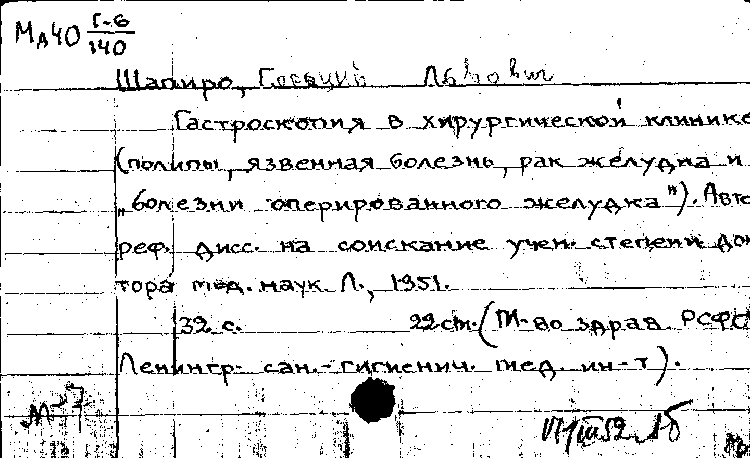 Мд40 Г-6/140
Шапиро, Львович
Гастроскопия в хирургической клинике
(полипы, язвенная болезнь, рак желудка и
„болезни оперированного желудка"). Авто
реф. дисс. на соискание учен. степени док
тора мед. наук. Л., 1951.
32 с. 22 см. (М-во здрав. РСФС
Ленингр. сан.-гигиенич. мед. ин-т).